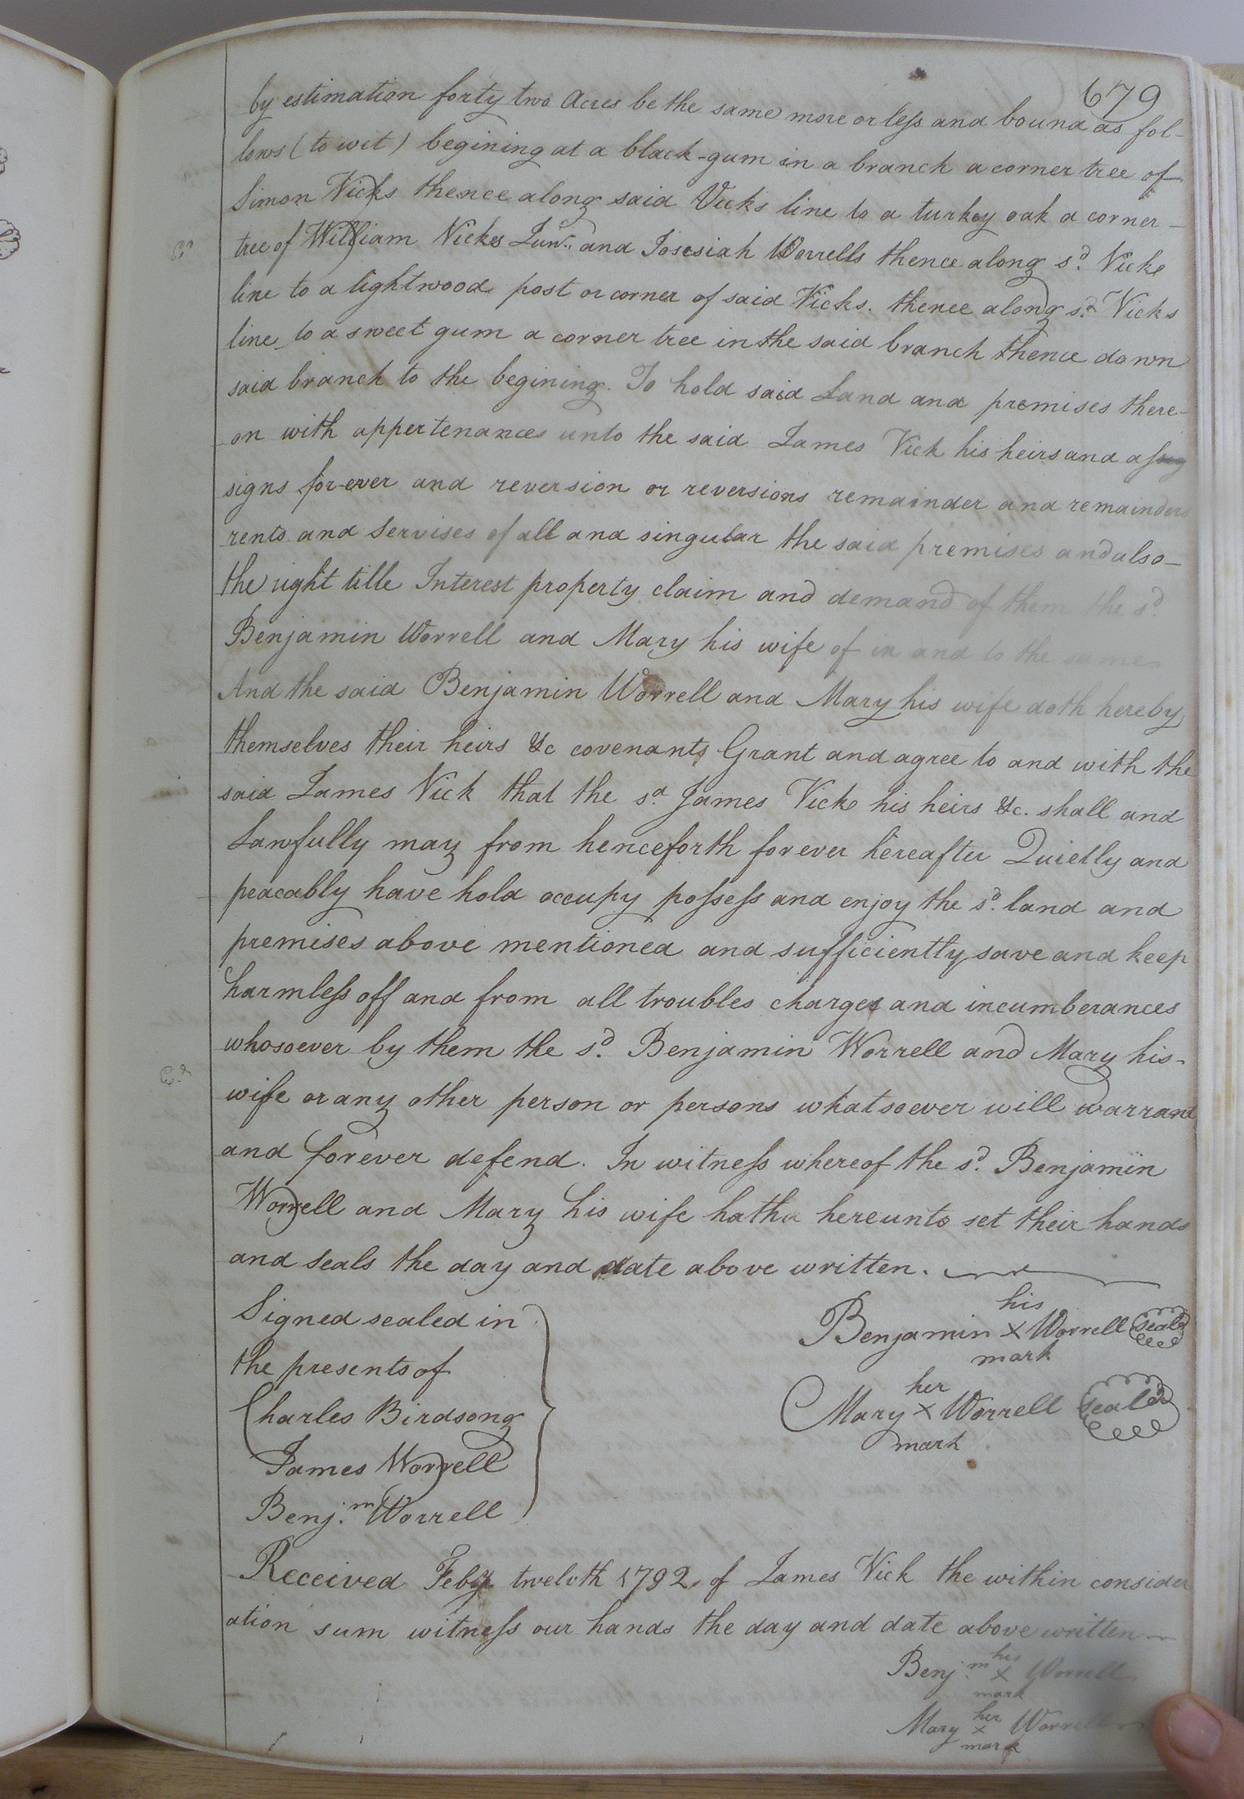 679
by estimation forty two Acres be the same more or less and bound as fol-
lows (to wit) begining at a black-gum in a branch a corner tree of
Simon Vicks thence along said Vicks line to a turkey oak a corner-
tree of William Vickes Junr. and Josesiah Worrells thence along sd. Vicks
line to a lightwood post or corner of said Vicks. thence along sd. Vicks
line to a sweet gum a corner tree in the said branch thence down
said branch to the begining. To hold said Land and premises there-
on with appertenances unto the said James Vick his heirs and as
signs for-ever and reversion or reversions remainder and remainders
rents and Servises of all and singular the said premises and also-
the right title Interest property claim and demand of them the sd.
Benjamin Worrell and Mary his wife of in and to the same
And the said Benjamin Worrell and Mary his wife doth hereby
themselves their heirs &c covenants Grant and agree to and with the
said James Vick that the sd James Vick his heirs &c. shall and
Lawfully may from henceforth forever hereafter Quietly and
peacably have hold occupy possess and enjoy the sd. land and
premises above mentioned and sufficiently save and keep
harmless off and from all troubles charges and incumberances
whosoever by them the sd. Benjamin Worrell and Mary his-
wife or any other person or persons whatsoever will warrant
and forever defend. In witness whereof the sd. Benjamin
Worrell and Mary his wife hatha hereunto set their hands
and seals the day and date above written.
Signed sealed in
the presents of
Charles Birdsong
James Worrell
Benj.m Worrell
his
Benjamin X Worrell seald
mark
her
Mary X Worrell seald
mark
Received Feby twelvth 1792. of James Vick the within consider
ation sum witness our hands the day and date above written
his
Benj.m X Worrell
mark
her
Mary X Worrell
mark